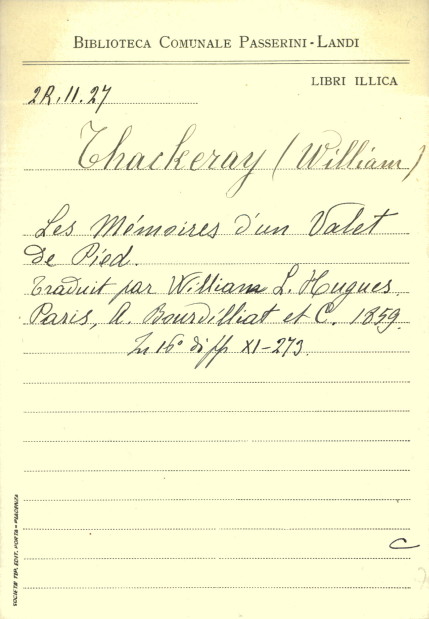 BIBLIOTECA COMUNALE PASSERINI-LANDI
LIBRI ILLICA
2R.11.27
Thackeray (William)
Les Mémoires d'un Valet
de Pied.
Traduit par William L. Hugues.
Paris, A. Bourdilliat et C. 1859.
In 16° di pp XI-273.
C